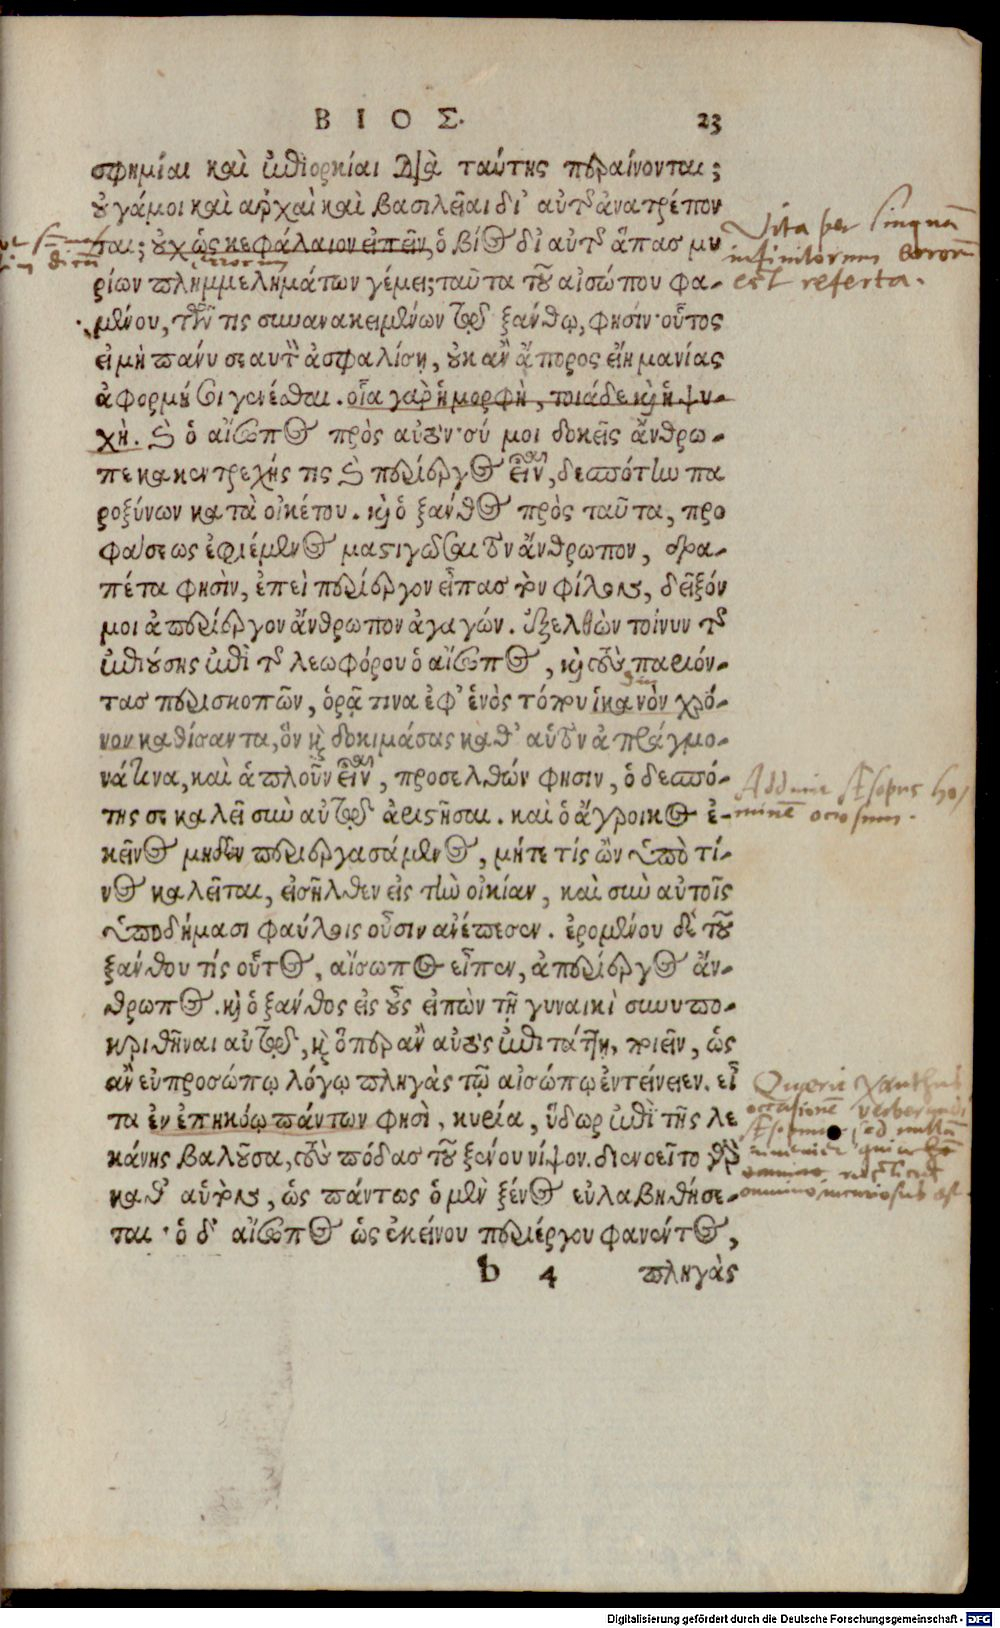 ΒΙΟΣ. 23
σφημίαι καὶ ἐπιορκίαι διὰ ταύτης περαίνονται;
οὐ γάμοι καὶ ἀρχαὶ καὶ βασιλεῖαι δι' αὐτῆς ἀνατρέπον
ται; οὐχ ὡς κεφάλαιον εἰπεῖν, ὁ βίος δι' αὐτῆς ἅπας μυ
ρίων πλημμελημάτων γέμει; ταῦτα τοῦ αἰσώπου φα-
μένου, τῶν τις συνανακειμένων τῷ ξάνθῳ, φησίν· οὗτος
εἰ μὴ πάνυ σεαυτὸν ἀσφαλίσῃ, οὐκ ἂν ἄπορος εἴη μανίας
ἀφορμή σοι γενέσθαι. οἵα γὰρ ἡ μορφὴ, τοιάδε καὶ ἡ ψυ-
χή. καὶ ὁ αἴσωπος πρὸς αὐτόν· σύ μοι δοκεῖς ἄνθρω-
πε κακεντρεχής τις καὶ περίεργος εἶναι, δεσπότην πα
ροξύνων κατὰ οἰκέτου. καὶ ὁ ξάνθος πρὸς ταῦτα, προ
φάσεως ἐφιέμενος μαστιγῶσαι τὸν ἄνθρωπον, δρα-
πέτα φησὶν, ἐπεὶ περίεργον εἶπας τὸν φίλον, δεῖξόν
μοι ἀπερίεργον ἄνθρωπον ἀγαγών. ἐξελθὼν τοίνυν τῆς
ἐπιούσης ἐπὶ τῆς λεωφόρου ὁ αἴσωπος, καὶ τοὺς παριόν-
τας περισκοπῶν, ὁρᾷ τινα ἐφ' ἑνὸς τόπου ἱκανὸν χρό-
νον καθίσαντα, ὃν καὶ δοκιμάσας καθ' αὑτὸν ἀπράγμο-
νά τινα, καὶ ἁπλοῦν εἶναι, προσελθών φησιν, ὁ δεσπό-
της σε καλεῖ σὺν αὐτῷ ἀριστῆσαι. καὶ ὁ ἄγροικος ἐ-
κεῖνος μηδὲν περιεργασάμενος, μήτε τίς ὢν ὑπὸ τί-
νος καλεῖται, εἰσῆλθεν εἰς τὴν οἰκίαν, καὶ σὺν αὐτοῖς
ὑποδήμασι φαύλοις οὖσιν ἀνέπεσεν. ἐρομένου δὲ τοῦ
ξάνθου τίς οὗτος, αἴσωπος εἶπεν, ἀπερίεργος ἄν-
θρωπος. καὶ ὁ ξάνθος εἰς οὖς εἰπὼν τῇ γυναικὶ συνυπο-
κριθῆναι αὐτῷ, καὶ ὅπερ ἂν αὐτὸς ἐπιτάττῃ, ποιεῖν, ὡς
ἂν εὐπροσώπῳ λόγῳ πληγὰς τῷ αἰσώπῳ ἐντείνειεν. εἶ
τα ἐν ἐπηκόῳ πάντων φησὶ, κυρία, ὕδωρ ἐπὶ τῆς λε
κάνης βαλοῦσα, τοὺς πόδας τοῦ ξένου νίψον. διενοεῖτο γὰρ
καθ' αὑτὸν, ὡς πάντως ὁ μὲν ξένος εὐλαβηθήσε-
ται· ὁ δ' αἴσωπος ὡς ἐκείνου περιέργου φανέντος,
b 4 πληγὰς
Vita per linguā
infinitorum error
est referta.
Adducit Æsopus ho/
minē ociosum.
Querit Xanthus
occasionē verberandi
Æsopum, sed nullam
Digitalisierung gefördert durch die Deutsche Forschungsgemeinschaft - DFG